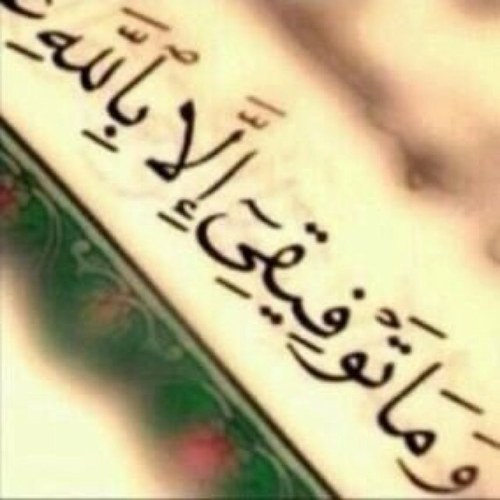 وَمَا تَوْفِيقِىٓ إِلَّا بِٱللَّهِ